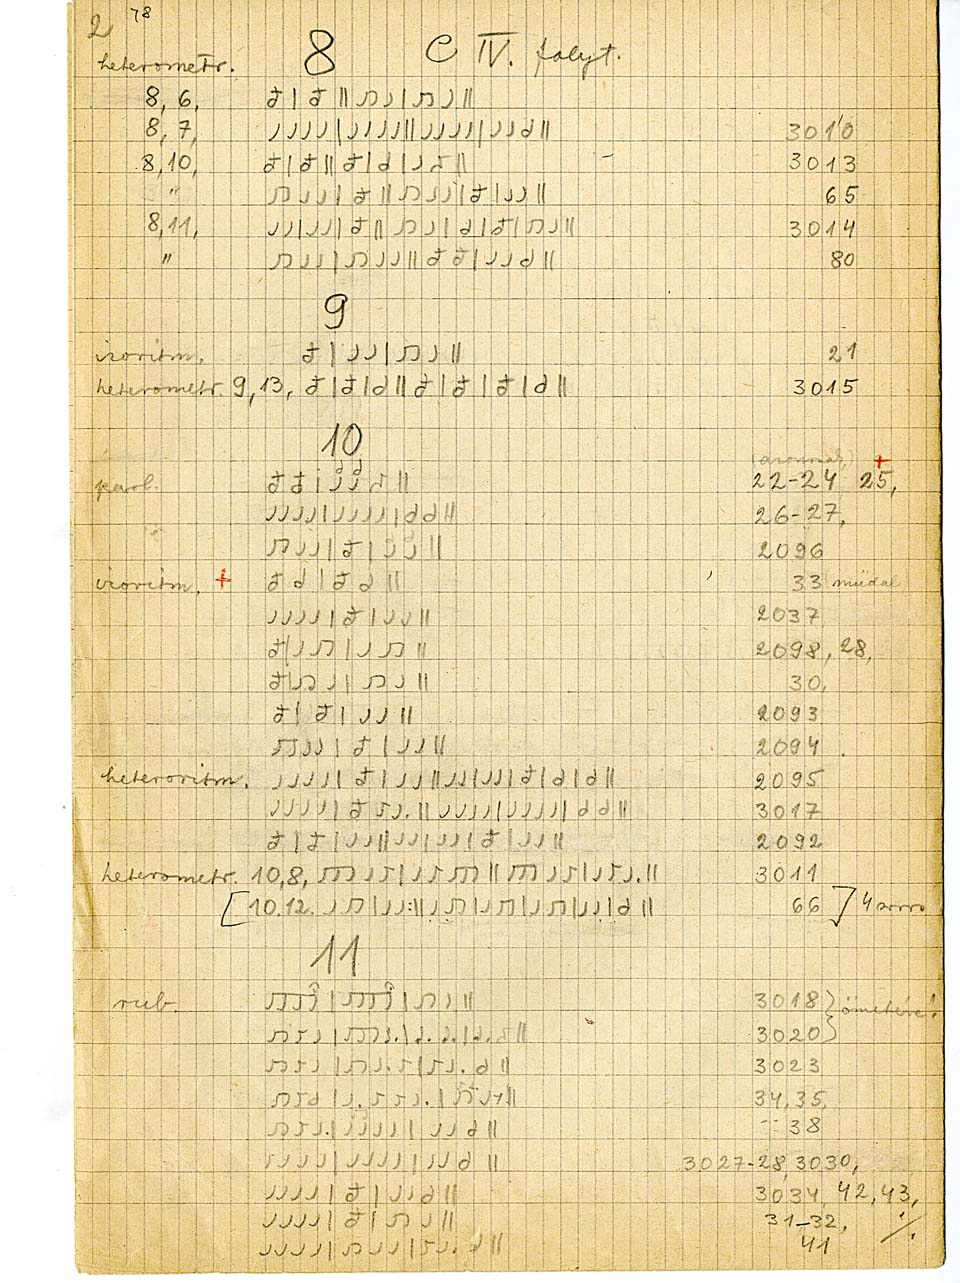 2 78
heterometr. 8 C IV. folyt.
8, 6,
8, 7, 3010
8,10, 3013
" 65
8,11, 3014
" 80
9
izoritm. 21
heterometr. 9,13, 3015
10
parl. 22-24 25,
26-27,
2096
izoritm. + 33
2037
2098, 28,
30,
2093
2094
heteroritm. 2095
3017
2092
heterometr. 10,8, 3011
[10.12. 66 ] 4
11
rub. 3018
3020
3023
34,35,
38
3027-28, 3030,
3034, 42,43,
31-32,
41 ./.